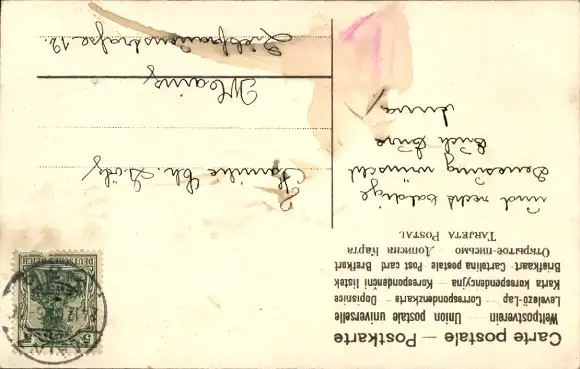 Carte postale — Postkarte
Weltpostverein — Union postale universelle
Levelező-Lap — Correspondenzkarte — Dopisnice
Karta korespondencyjna — Korespondenční listek
Briefkaart — Cartolina postale — Post card — Brefkort
Открытое письмо — Дописна Карта
Tarjeta Postal
und recht baldige
Genesung wünscht
Euch Eure
Anna
Familie Ch.
Mainz
Liebfrauenstraße 12.
DEUTSCHES REICH
5
5